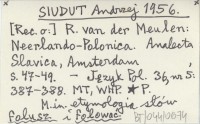 SIUDUT Andrzej 1956.
[Rec. o:] R. van der Meulen:
Neerlando-Polonica. Analecta
Slavica, Amsterdam
s. 47-49. — Język Pol. 36, nr 5:
387-388. MT, WHP. ★P.
M.in. etymologia słów
fałusz i folować.